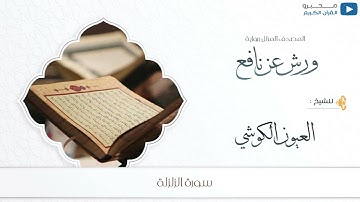 محبرو
القرآن الكريم
المصحف المنزل برواية
ورش عن نافع
للشيخ :
العيون الكوشي
سورة الزلزلة